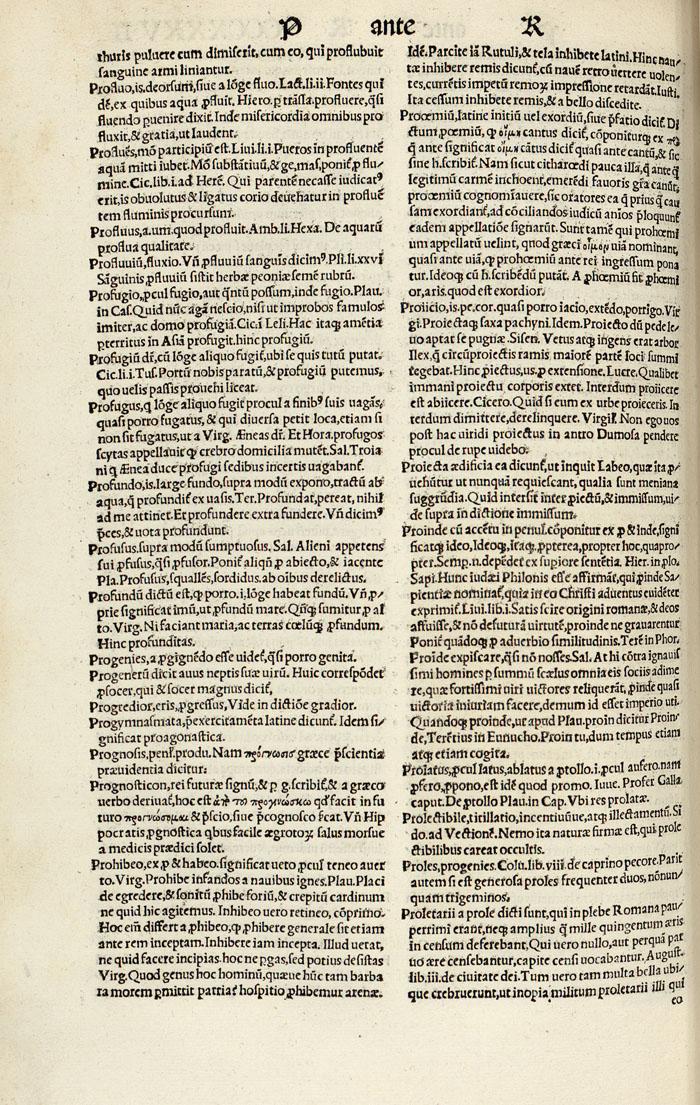 P ante R
thuris puluere cum dimiserit, cum eo, qui proflubuit
sanguine armi liniantur.
Profluo, is, deorsum, siue a lõge fluo. Lact. li. ii. Fontes qui
dẽ, ex quibus aqua ꝓfluit. Hiero. ꝑ trãsla. profluere, q̃si
fluendo ꝑuenire dixit. Inde misericordia omnibus pro
fluxit, & gratia, ut laudent.
Profluẽs, mõ participiũ est. Liui. li. i. Pueros in profluentẽ
aquã mitti iubet. Mõ substãtiuũ, & ge, mas, poniť, ꝓ flu/
mine. Cic. lib. i. ad Herẽ. Qui parentẽ necasse iudicatꝰ
erit, is obuolutus & ligatus corio deuehatur in profluẽ
tem fluminis procursum.
Profluus, a, um. quod profluit. Amb. li. Hexa. De aquarũ
proflua qualitate.
Profluuiũ, fluxio. Vñ ꝓfluuiũ sanguis dicimꝰ. Pli. li. xxvi
Sãguinis ꝓfluuiũ sistit herbæ peoniæ semẽ rubrũ.
Profugio, ꝓcul fugio, aut q̃ntũ possum, inde fugio. Plau.
in Cas. Quid nũc agã nescio, nisi ut improbos famulos
imiter, ac domo profugiã. Cic. i Leli. Hac itaqꝫ amẽtia
ꝑterritus in Asiã profugit. hinc profugiũ.
Profugiũ dř, cũ lõge aliquo fugiť, ubi se quis tutũ putat.
Cic. li. i. Tus. Portũ nobis paratũ, & profugiũ putemus,
quo uelis passis prouehi liceat.
Profugus, q lõge aliquo fugit procul a finibꝰ suis uagãs,
quasi porro fugatus, & qui diuersa petit loca, etiam si
non sit fugatus, ut a Virg. Æneas dř. Et Hora. profugos
scytas appellauit qꝫ crebro domicilia mutẽt. Sal. Troia
ni q Ænea duce profugi sedibus incertis uagabanť.
Profundo, is, large fundo, supra modũ expono, tractũ ab
aqua, q̃ profundiť ex uasis. Ter. Profundat, pereat, nihil
ad me attinet. Et profundere extra fundere. Vñ dicimꝰ
p̃ces, & uota profundunt.
Profusus, supra modũ sumptuosus. Sal. Alieni appetens
sui ꝓfusus, q̃si ꝓfusor. Poniť aliqñ ꝓ abiecto, & iacente
Pla. Profusus, squallẽs, sordidus. ab oĩbus derelictus.
Profundũ dictũ est, qꝫ porro. i. lõge habeat fundũ. Vñ ꝓ/
prie significat imũ, ut ꝓfundũ mare. Qñqꝫ sumitur ꝓ al
to. Virg. Ni faciant maria, ac terras cœlũqꝫ ꝓfundum.
Hinc profunditas.
Progenies, a ꝓgignẽdo esse uideť, q̃si porro genita.
Progenerũ dicit auus neptis suæ uirũ. Huic correspõdet
ꝓsocer, qui & socer magnus diciť,
Progredior, eris, ꝓgressus, Vide in dictiõe gradior.
Progymnasmata, p̃exercitamẽta latine dicunť. Idem si/
gnificat proagonastica.
Prognosis, penl. produ. Nam πρόγνωσις græce p̃scientia
præuidentia dicitur.
Prognosticon, rei futuræ signũ, & ꝑ g. scribiť, & a græco
uerbo deriuať, hoc est ἀπὸ τοῦ προγινώσκω qď facit in fu
turo προγνώσομαι & p̃scio, siue p̃cognosco ſcat. Vñ Hip
pocratis ꝓgnostica qbus facile ægrotoꝝ salus morsue
a medicis prædici solet.
Prohibeo, ex ꝓ & habeo. significat ueto ꝓcul teneo auer
to. Virg. Prohibe infandos a nauibus ignes. Plau. Placi
de egredere, & sonitũ ꝓhibe foriũ, & crepitũ cardinum
ne quid hic agitemus. Inhibeo uero retineo, cõprimo.
Hoc em̃ differt a ꝓhibeo, qꝫ ꝓhibere generale sit etiam
ante rem inceptam. Inhibere iam incepta. Illud uetat,
ne quid facere incipias. hoc ne ꝑgas, sed potius desistas
Virg. Quod genus hoc hominũ, quæue hũc tam barba
ra morem ꝑmittit patria? hospitio ꝓhibemur arenæ.
Idẽ. Parcite iã Rutuli, & tela inhibete latini. Hinc nau/
tæ inhibere remis dicunť, cũ nauẽ retro uertere uolen/
tes, currẽtis impetũ remoꝝ impressione retardãt. Iusti.
Ita cessum inhibete remis, & a bello discedite.
Proœmiũ, latine initiũ uel exordiũ, siue p̃fatio diciť. Di
ctum, ꝓœmiũ, q̃ οἴμη cantus diciť, cõponiturqꝫ ex πρὸ
q̃ ante significat οἴμη cãtus diciť quasi ante cantũ, & sic
sine h. scribiť. Nam sicut citharœdi pauca illa, q̃ ante q̃
legitimũ carmẽ inchoent, emerẽdi fauoris gr̃a canũt,
proœmiũ cognomiauere, sic oratores ea q̃ prius q̃ cau
sam exordianť, ad cõciliandos iudicũ anios p̃loquunť
eadem appellatiõe signarũt. Sunt tamẽ qui prohœmi
um appellatũ uelint, quod græci οἴμον uiã nominant,
quasi ante uiã, qꝫ prohœmiũ ante rei ingressum pona
tur. Ideoqꝫ cũ h. scribẽdũ putãt. A ꝓhœmiũ fit ꝓhœmi
or, aris. quod est exordior.
Proiicio, is. pe. cor. quasi porro iacio, extẽdo, porrigo. Vir
gi. Proiectaqꝫ saxa pachyni. Idem. Proiecto dũ pede le/
uo aptat se pugnæ. Sisen. Vetus atqꝫ ingens erat arbor
Ilex, q̃ circũproiectis ramis maiorẽ partẽ loci summi
tegebat. Hinc ꝓiectus, us. ꝓ extensione. Lucre. Qualibet
immani proiectu corporis extet. Interdum proiicere
est abiicere. Cicero. Quid si eum ex urbe proieceris. In
terdum dimittere, derelinquere. Virgil. Non ego uos
post hac uiridi proiectus in antro Dumosa pendere
procul de rupe uidebo.
Proiecta ædificia ea dicunť, ut inquit Labeo, quæ ita ꝓ/
uehũtur ut nunquã requiescant, qualia sunt meniana
suggrũdia. Quid intersit inter ꝓiectũ, & immissum, ui/
de supra in dictione immissum.
Proinde cũ accẽtu in penul. cõponitur ex ꝓ & inde, signi
ficatqꝫ ideo, Ideoqꝫ, itaqꝫ, ꝓpterea, propter hoc, quapro/
pter. Semp. n. depẽdet ex supiore sentẽtia. Hier. in plo.
Sapi. Hunc iudæi Philonis esse affirmãt, qui ꝓinde Sa/
pientiæ nominať, quia in eo Christi aduentus euidẽter
exprimiť. Liui. lib. i. Satis scire origini romanæ, & deos
affuisse, & nõ defuturã uirtutẽ, proinde ne grauarentur
Poniť quãdoqꝫ ꝓ aduerbio similitudinis. Terẽ in Phor.
Proĩde expiscare, q̃si nõ nosses. Sal. At hi cõtra ignauis
simi homines ꝑ summũ scælus omnia eis sociis adime
re, quæ fortissimi uiri uictores reliquerãt, ꝓinde quasi
uictoria iniuriam facere, demum id esset imperio uti.
Quandoqꝫ proinde, ut apud Plau. proin dicitur Proin/
de, Terẽtius in Eunucho. Proin tu, dum tempus etiam
atqꝫ etiam cogita.
Prolatus, ꝓcul latus, ablatus a ꝓtollo. i. ꝓcul aufero. nam
ꝓfero, ꝓpono, est idẽ quod promo. Iuue. Profer Galla
caput. De ꝓtollo Plau. in Cap. Vbi res prolatæ.
Prolectibile, titillatio, incentiuũue, atqꝫ illectamentũ. Si
do. ad Vectionẽ. Nemo ita naturæ firmæ est, qui prole
ctibilibus careat occultis.
Proles, progenies. Colũ. lib. viii. de caprino pecore. Parit
autem si est generosa proles frequenter duos, nõnun/
quam trigeminos.
Proletarii a prole dicti sunt, qui in plebe Romana pau/
perrimi erant, neqꝫ amplius q̃ mille quingentum æris
in censum deferebant, Qui uero nullo, aut perquã par
uo ære censebantur, capite censi uocabantur. August.
lib. iii. de ciuitate dei. Tum uero tam multa bella ubi/
que crebruerunt, ut inopia militum proletarii illi qui
eo